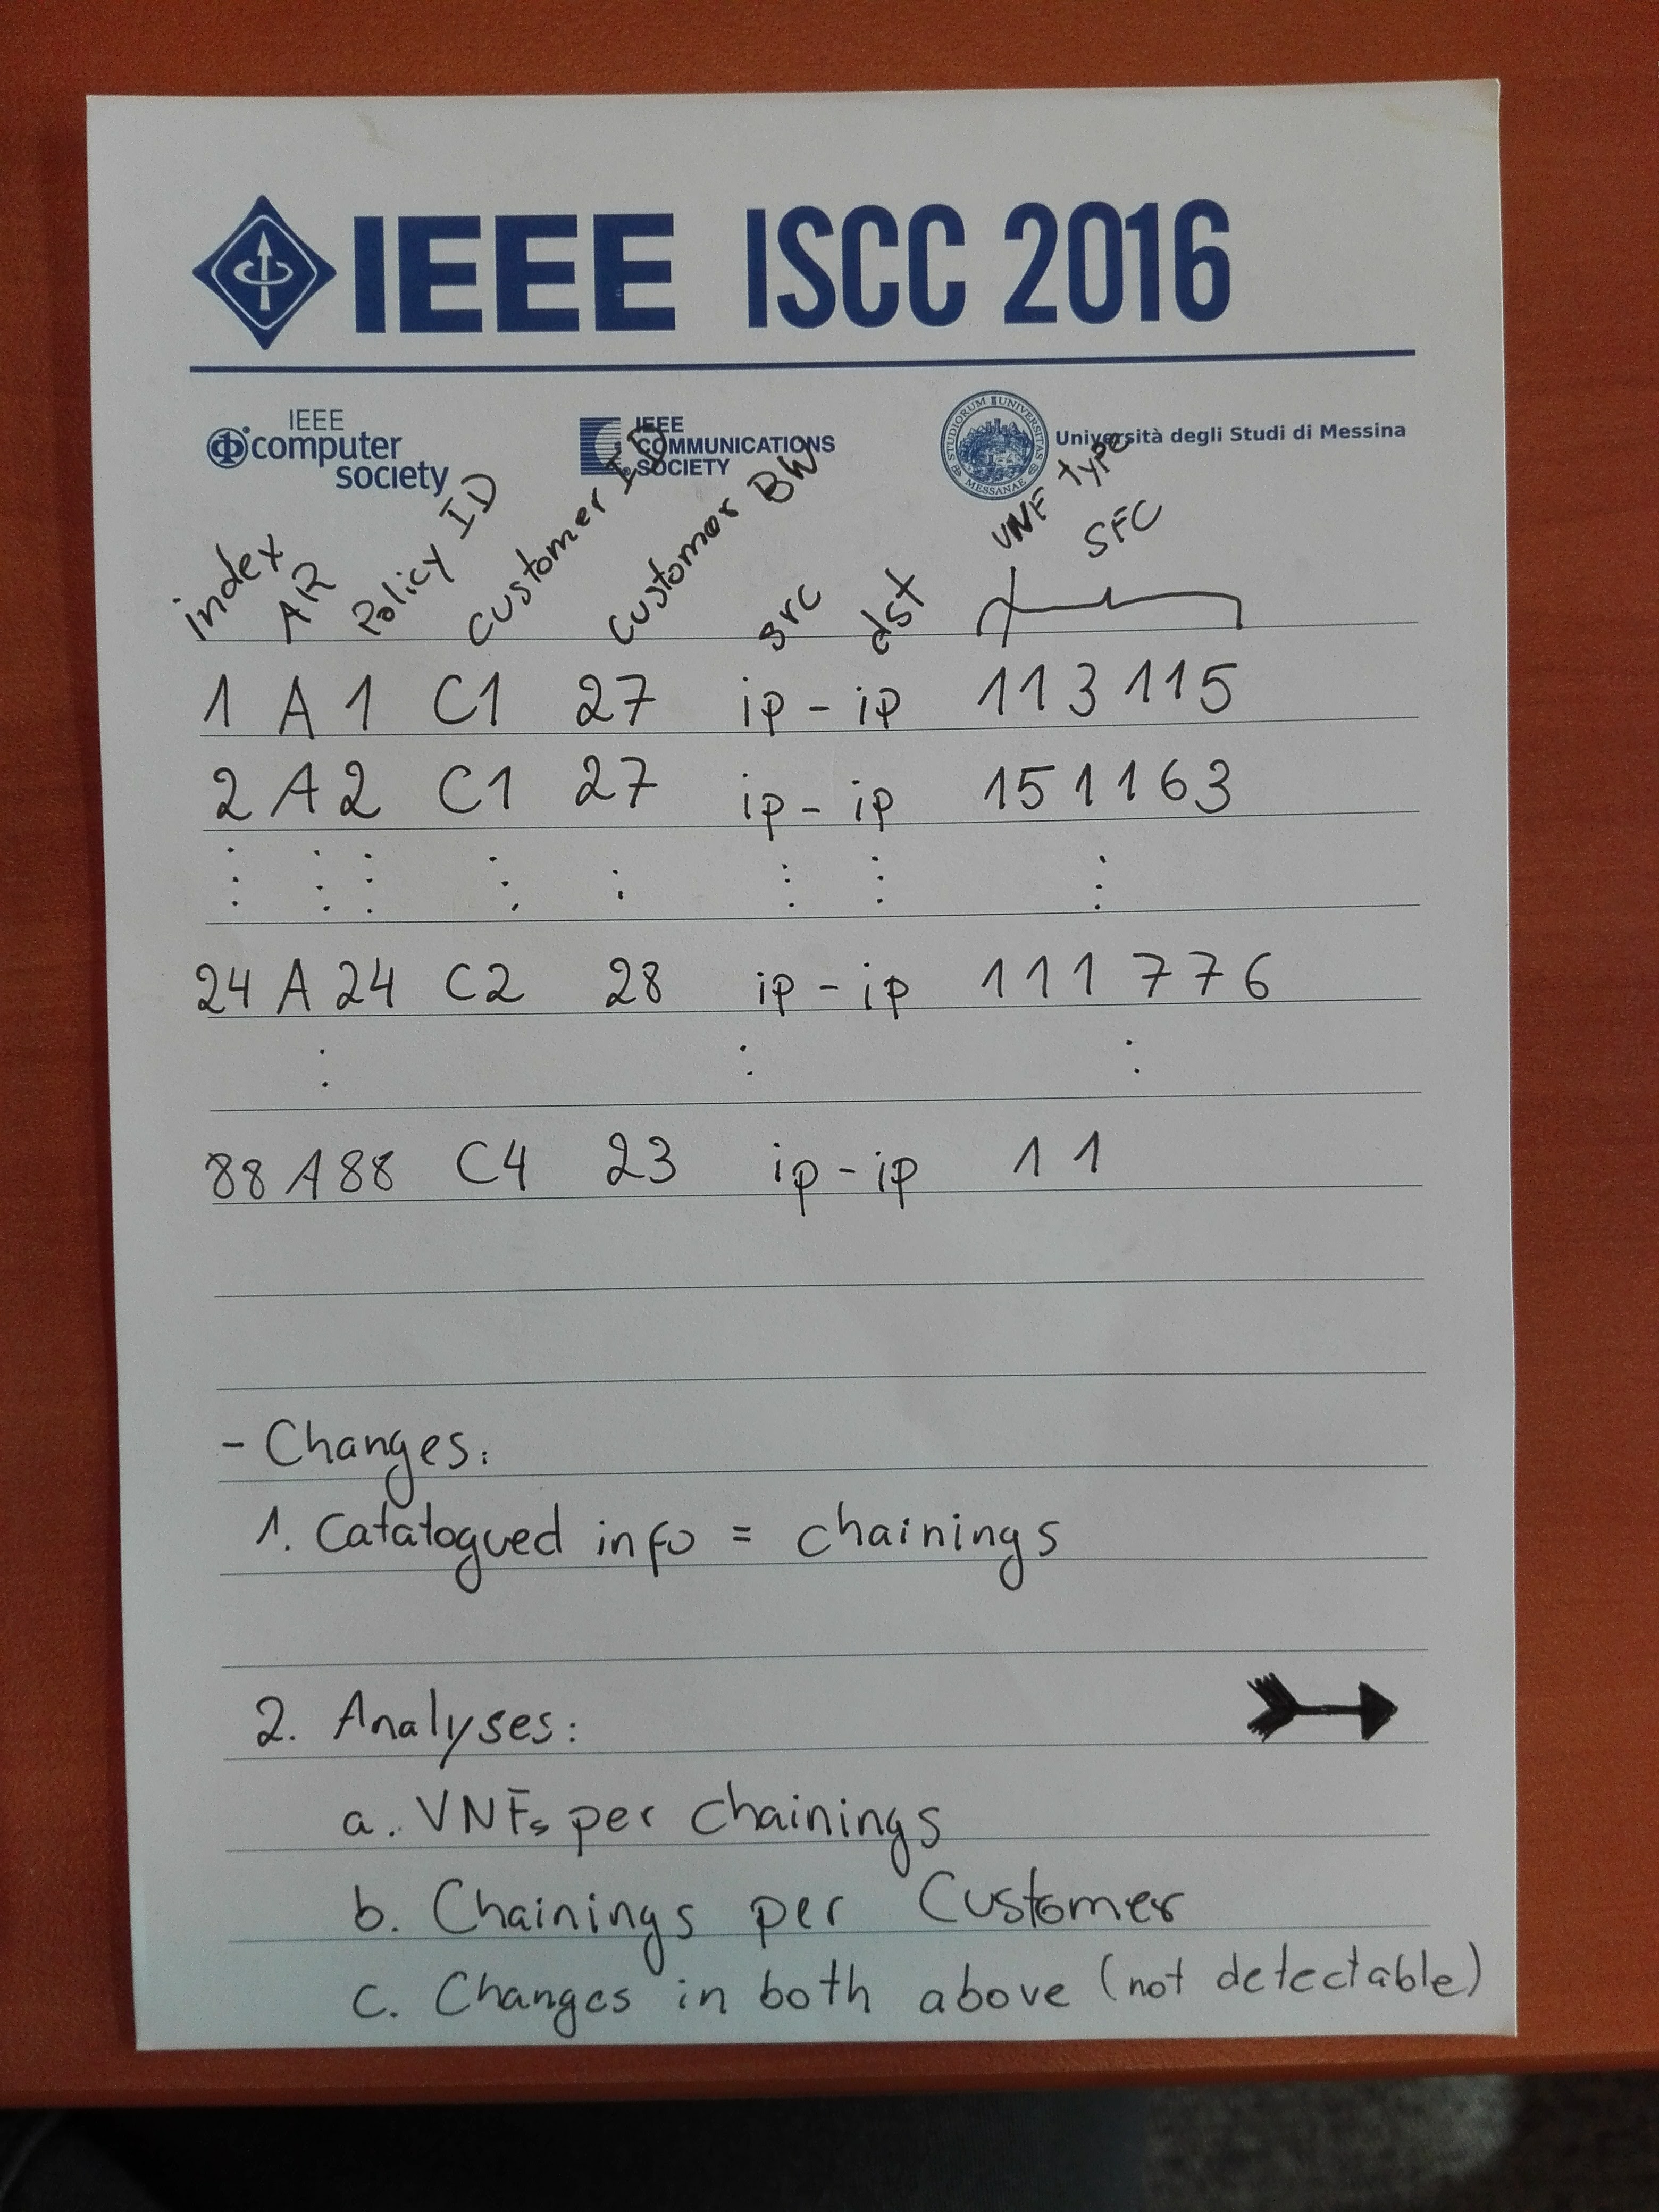 IEEE ISCC 2016
IEEE computer society
IEEE COMMUNICATIONS SOCIETY
STUDIORUM UNIVERSITAS MESSANAE
Università degli Studi di Messina
index AR Policy ID Customer ID Customer BW src dst VNF type SFC
1 A 1 C1 27 ip - ip 1 1 3 1 1 5
2 A 2 C1 27 ip - ip 1 5 1 1 6 3
24 A 24 C2 28 ip - ip 1 1 1 7 7 6
88 A 88 C4 23 ip - ip 1 1
- Changes:
1. Catalogued info = chainings
2. Analyses:
a. VNFs per chainings
b. Chainings per Customer
c. Changes in both above (not detectable)